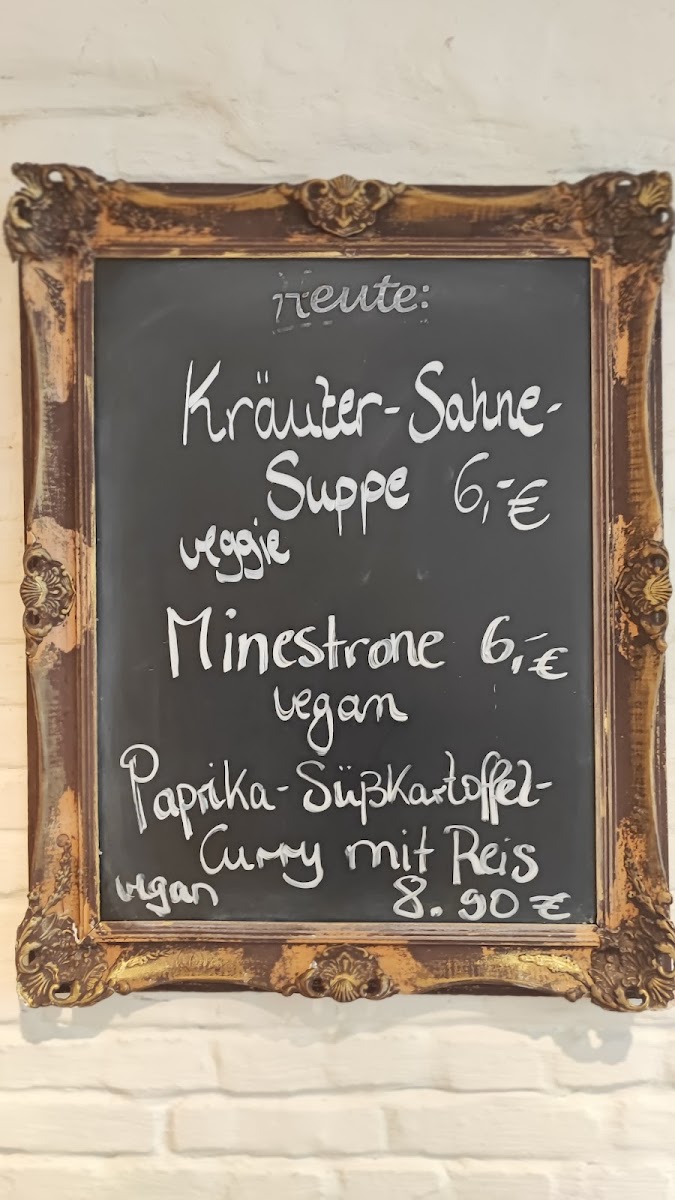 Heute:
Kräuter-Sahne-
Suppe 6,-€
veggie
Minestrone 6,-€
vegan
Paprika-Süßkartoffel-
Curry mit Reis
vegan 8.90 €